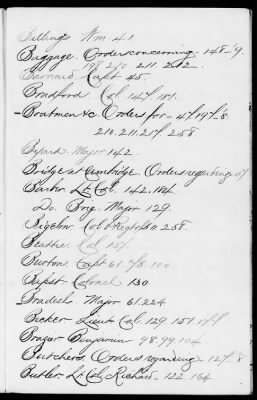 Billing Wm 41
Baggage. Orders concerning - 148-9.
198. 210. 211. 212.
Barnard Capt 45.
Bradford Col 147. 181.
Boatmen &c. Orders for - 47. 197-8
210. 211. 217. 258
Byard. Major 142.
Bridge at Cambridge. Orders regarding 67
Barber Lt Col. 142. 184.
Do. Brig. Major 129.
Bigelow Col & Regt 50. 258.
Col 137.
Burton Capt 61. 78. 100
Papst Colonel 130
Major 61. 224
Becker Lieut Col. 129. 151.
Brazer Benjamin 98. 99. 104
Butchers Orders regarding 127-8
Butler. Lt Col. Richard. 122. 164